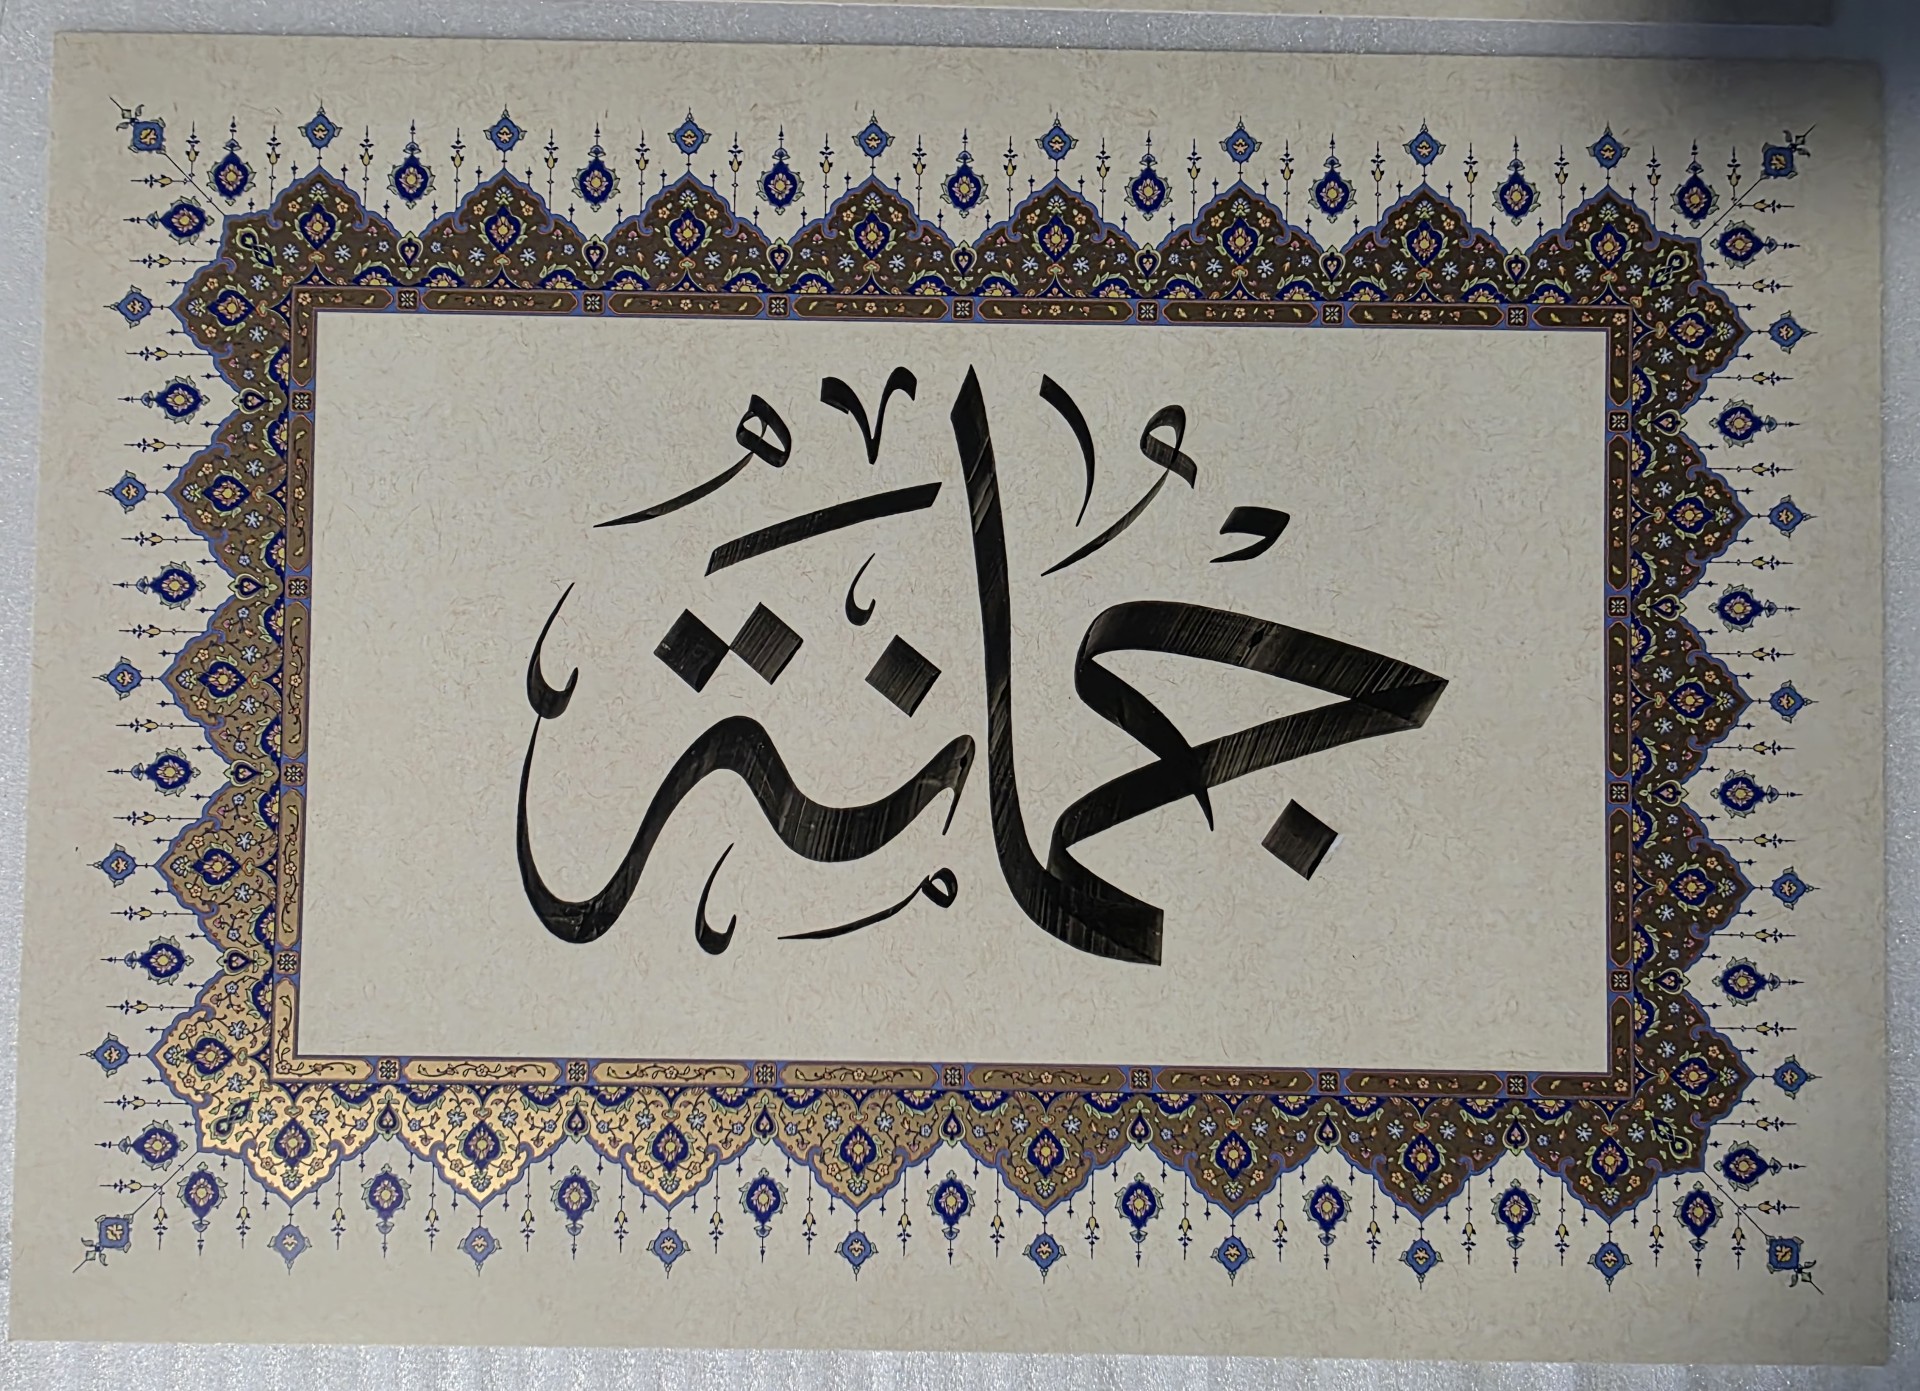 جُمَانَة